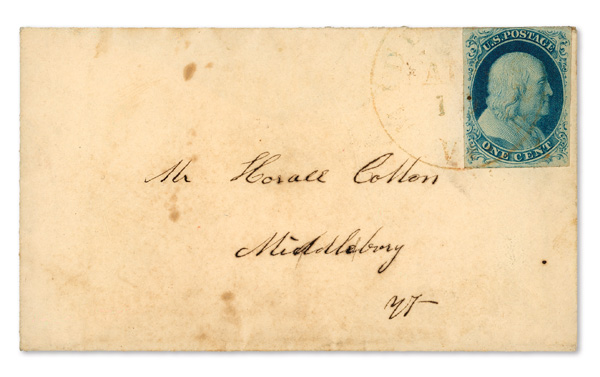 U.S. POSTAGE
ONE CENT
Mr Horace Cotton
Middlebury
Vt